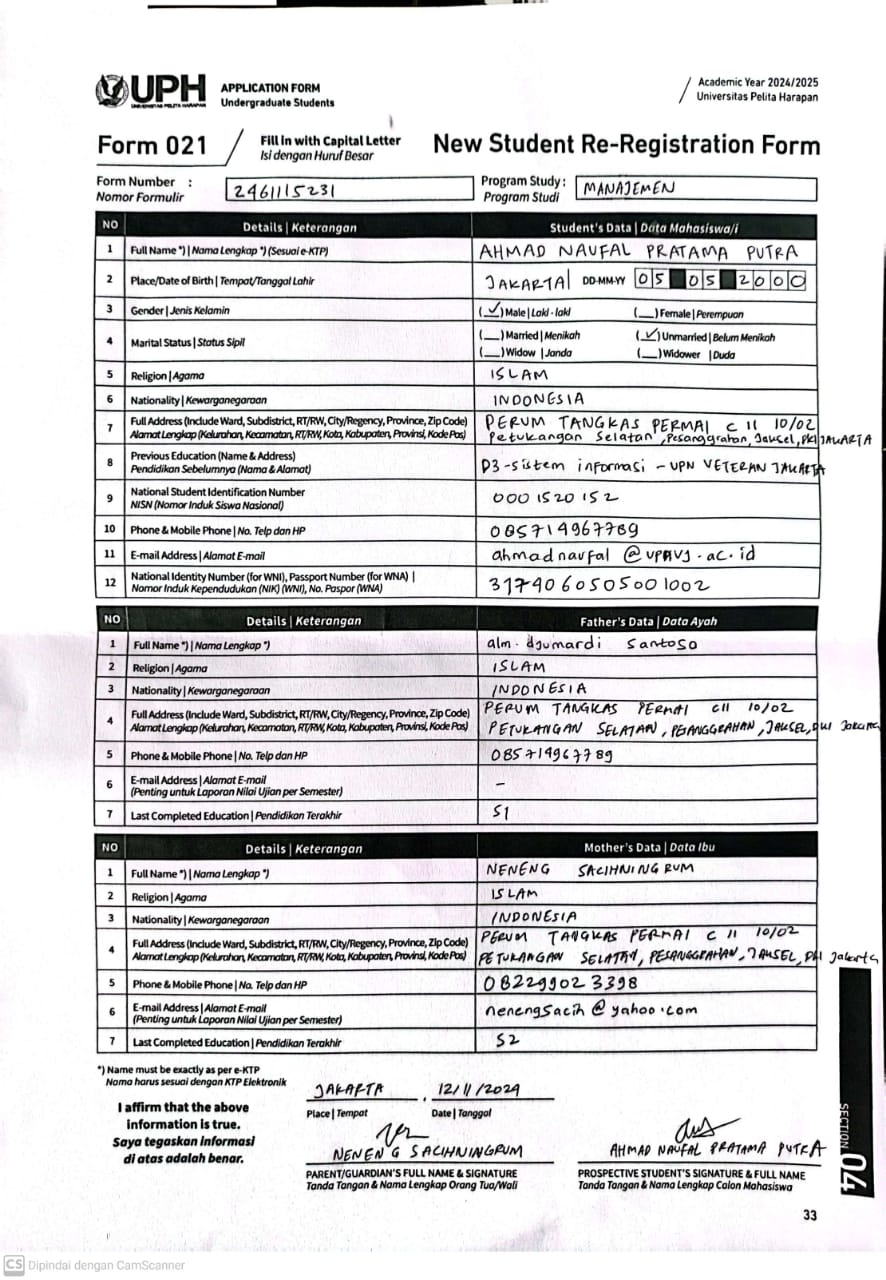 UPH
UNIVERSITAS PELITA HARAPAN
APPLICATION FORM
Undergraduate Students
Academic Year 2024/2025
Universitas Pelita Harapan
Form 021
Fill In with Capital Letter
Isi dengan Huruf Besar
New Student Re-Registration Form
Form Number :
Nomor Formulir
2461115231
Program Study :
Program Studi
MANAJEMEN
NO Details | Keterangan Student's Data | Data Mahasiswa/i
1 Full Name *) | Nama Lengkap *) (Sesuai e-KTP) AHMAD NAUFAL PRATAMA PUTRA
2 Place/Date of Birth | Tempat/Tanggal Lahir JAKARTA DD-MM-YY 05 05 2000
3 Gender | Jenis Kelamin (✓) Male | Laki - laki (__) Female | Perempuan
4 Marital Status | Status Sipil
(__) Married | Menikah (✓) Unmarried | Belum Menikah
(__) Widow | Janda (__) Widower | Duda
5 Religion | Agama ISLAM
6 Nationality | Kewarganegaraan INDONESIA
7 Full Address (Include Ward, Subdistrict, RT/RW, City/Regency, Province, Zip Code) PERUM TANGKAS PERMAI C 11 10/02
Alamat Lengkap (Kelurahan, Kecamatan, RT/RW, Kota, Kabupaten, Provinsi, Kode Pos) Petukangan Selatan, Pesanggrahan, Jaksel, DKI JAKARTA
8 Previous Education (Name & Address)
Pendidikan Sebelumnya (Nama & Alamat)
D3 - sistem informasi - UPN VETERAN JAKARTA
9 National Student Identification Number
NISN (Nomor Induk Siswa Nasional)
0001520152
10 Phone & Mobile Phone | No. Telp dan HP 085714967789
11 E-mail Address | Alamat E-mail ahmadnaufal @upnvj.ac.id
12 National Identity Number (for WNI), Passport Number (for WNA) |
Nomor Induk Kependudukan (NIK) (WNI), No. Paspor (WNA)
3174060505001002
NO Details | Keterangan Father's Data | Data Ayah
1 Full Name *) | Nama Lengkap *) alm. djumardi Santoso
2 Religion | Agama ISLAM
3 Nationality | Kewarganegaraan INDONESIA
4 Full Address (Include Ward, Subdistrict, RT/RW, City/Regency, Province, Zip Code) PERUM TANGKAS PERMAI C11 10/02
Alamat Lengkap (Kelurahan, Kecamatan, RT/RW, Kota, Kabupaten, Provinsi, Kode Pos) PETUKANGAN SELATAN, PESANGGRAHAN, JAKSEL, DKI Jakarta
5 Phone & Mobile Phone | No. Telp dan HP 085714967789
6 E-mail Address | Alamat E-mail
(Penting untuk Laporan Nilai Ujian per Semester)
-
7 Last Completed Education | Pendidikan Terakhir S1
NO Details | Keterangan Mother's Data | Data Ibu
1 Full Name *) | Nama Lengkap *) NENENG SACIHNINGRUM
2 Religion | Agama ISLAM
3 Nationality | Kewarganegaraan INDONESIA
4 Full Address (Include Ward, Subdistrict, RT/RW, City/Regency, Province, Zip Code) PERUM TANGKAS PERMAI C 11 10/02
Alamat Lengkap (Kelurahan, Kecamatan, RT/RW, Kota, Kabupaten, Provinsi, Kode Pos) PETUKANGAN SELATAN, PESANGGRAHAN, JAKSEL, DKI Jakarta
5 Phone & Mobile Phone | No. Telp dan HP 082299023398
6 E-mail Address | Alamat E-mail
(Penting untuk Laporan Nilai Ujian per Semester)
nenengsacih@yahoo.com
7 Last Completed Education | Pendidikan Terakhir S2
*) Name must be exactly as per e-KTP
Nama harus sesuai dengan KTP Elektronik
I affirm that the above
information is true.
Saya tegaskan informasi
di atas adalah benar.
JAKARTA , 12/11/2024
Place | Tempat Date | Tanggal
NENENG SACIHNINGRUM
PARENT/GUARDIAN'S FULL NAME & SIGNATURE
Tanda Tangan & Nama Lengkap Orang Tua/Wali
AHMAD NAUFAL PRATAMA PUTRA
PROSPECTIVE STUDENT'S SIGNATURE & FULL NAME
Tanda Tangan & Nama Lengkap Calon Mahasiswa
SECTION 04
33
CS Dipindai dengan CamScanner